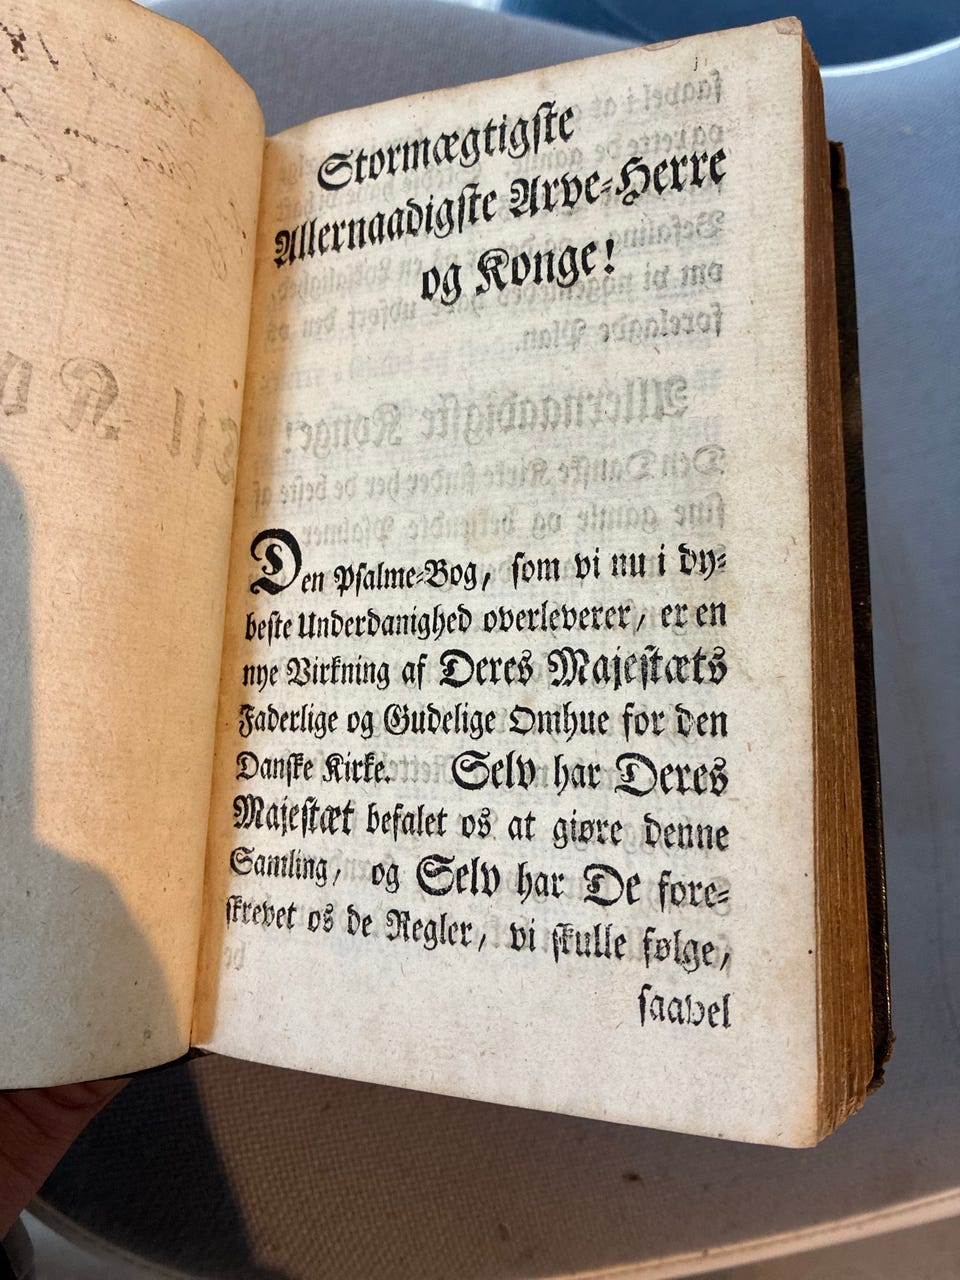 Stormægtigste
Allernaadigste Arve-Herre
og Konge!
Den Psalme-Bog, som vi nu i dy-
beste Underdanighed overleverer, er en
nye Virkning af Deres Majestæts
Faderlige og Gudelige Omhue for den
Danske Kirke. Selv har Deres
Majestæt befalet os at giøre denne
Samling, og Selv har De fore-
skrevet os de Regler, vi skulle følge,
saavel